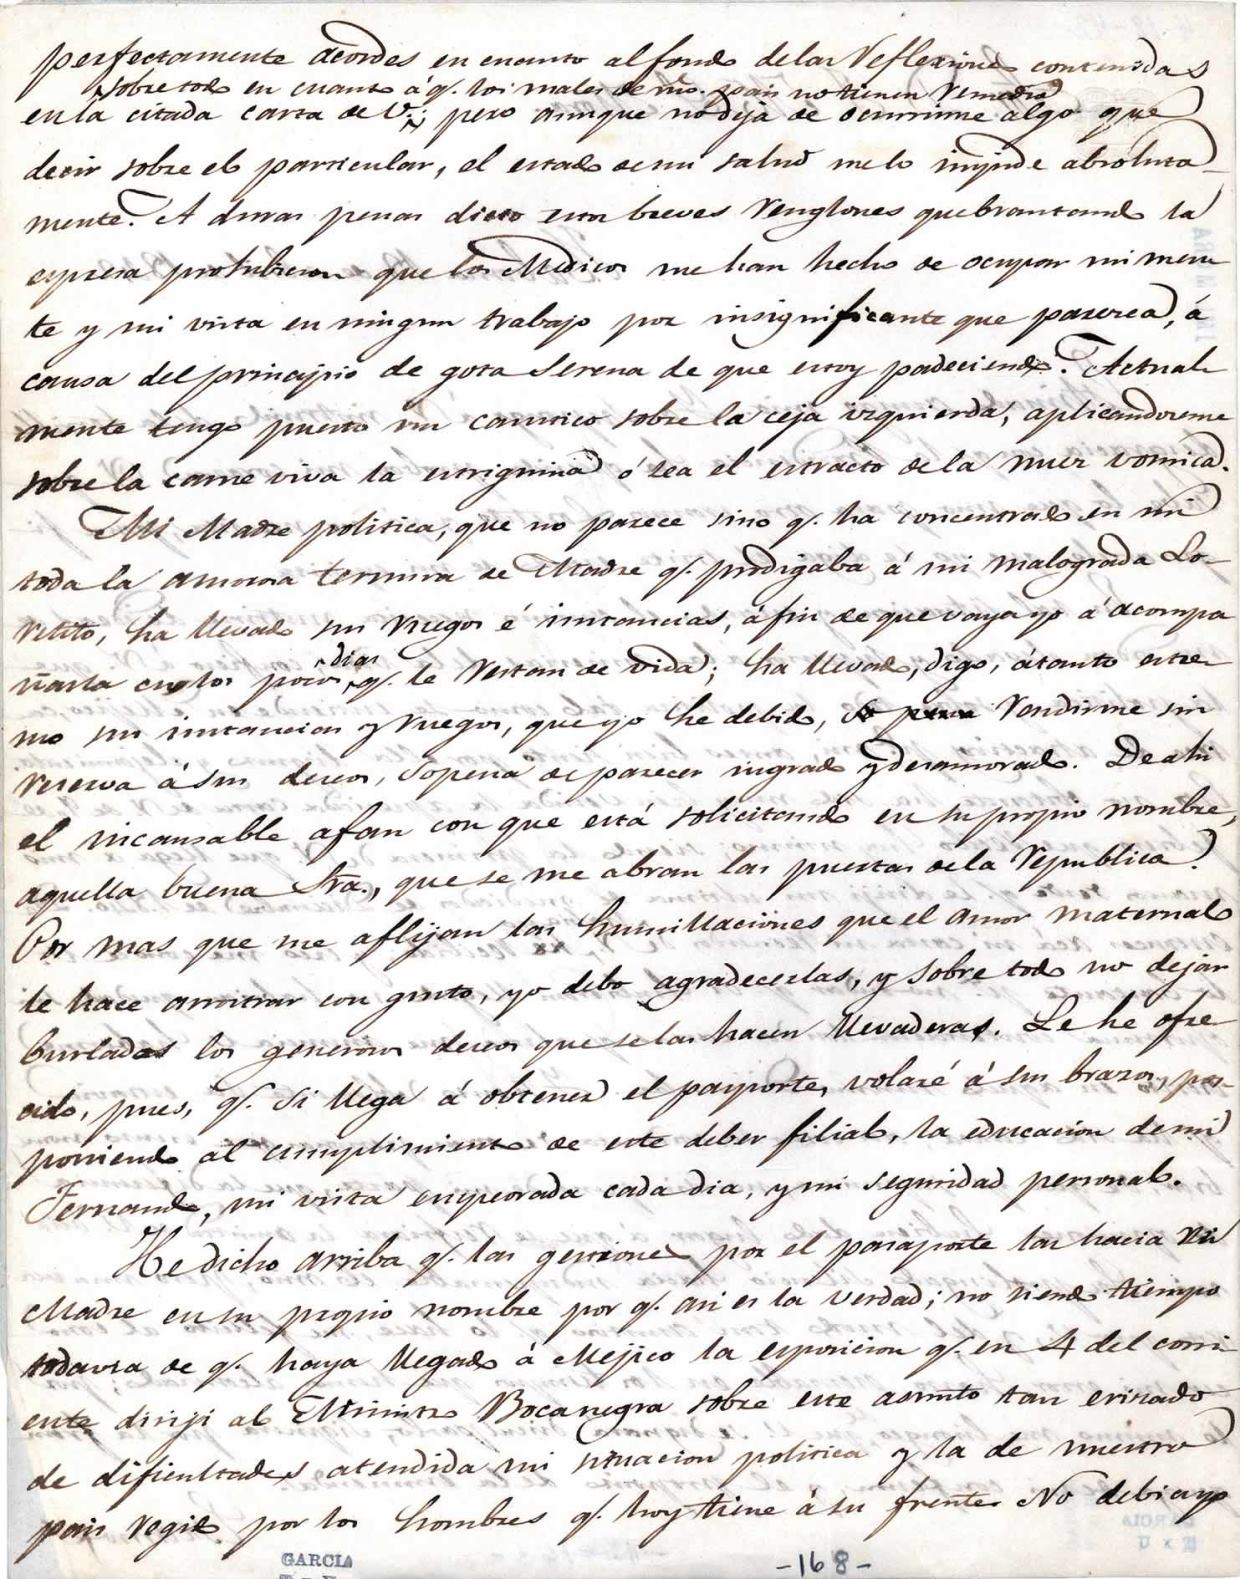 perfectamente acordes en cuanto al fondo de las reflexiones contenidas
sobre todo en cuanto á q. los males de ntro. pais no tienen remedio
en la citada carta de V.; pero aunque no deja de ocurrirme algo que
decir sobre el particular, el estado de mi salud me lo impide absoluta-
mente. A duras penas dicto estos breves renglones quebrantando la
espresa prohibicion que los Medicos me han hecho de ocupar mi men
te y mi vista en ningun trabajo por insignificante que parezca, á
causa del principio de gota serena de que estoy padeciendo. Actual-
mente tengo puesto un caustico sobre la ceja izquierda, aplicandoseme
sobre la carne viva la estrignina ó sea el estracto de la nuez vomica.
Mi Madre politica, que no parece sino q. ha concentrado en mi
toda la amorosa ternura de Madre q. prodigaba á mi malograda Lo-
retito, ha llevado sus ruegos é instancias, á fin de que vaya yo á acompa
ñarla en los pocos dias q. le restan de vida; ha llevado, digo, á tanto estre
mo sus instancias y ruegos, que yo he debido, so pena rendirme sin
reserva á sus deseos, sopena de parecer ingrato y desamorado. De ahi
el incansable afan con que está solicitando en su propio nombre,
aquella buena Sra., que se me abran las puertas de la Republica.
Por mas que me aflijan las humillaciones que el amor maternal
le hace arrostrar con gusto, yo debo agradecerlas, y sobre todo no dejar
burlados los generosos deseos que se las hacen llevaderas. Le he ofre
cido, pues, q. si llega á obtener el pasaporte, volaré á sus brazos, pos-
poniendo al cumplimiento de este deber filial, la educacion de mi
Fernando, mi vista empeorada cada dia, y mi seguridad personal.
He dicho arriba q. las gestiones por el pasaporte las hacia mi
Madre en su propio nombre por q. asi es la verdad; no siendo tiempo
todavia de q. haya llegado á Mejico la esposicion q. en 4 del corri
ente dirijí al Ministro Bocanegra sobre este asunto tan erizado
de dificultades atendida mi situacion politica y la de nuestro
pais regido por los hombres q. hoy tiene á su frente. No debia yo
GARCIA
-168-